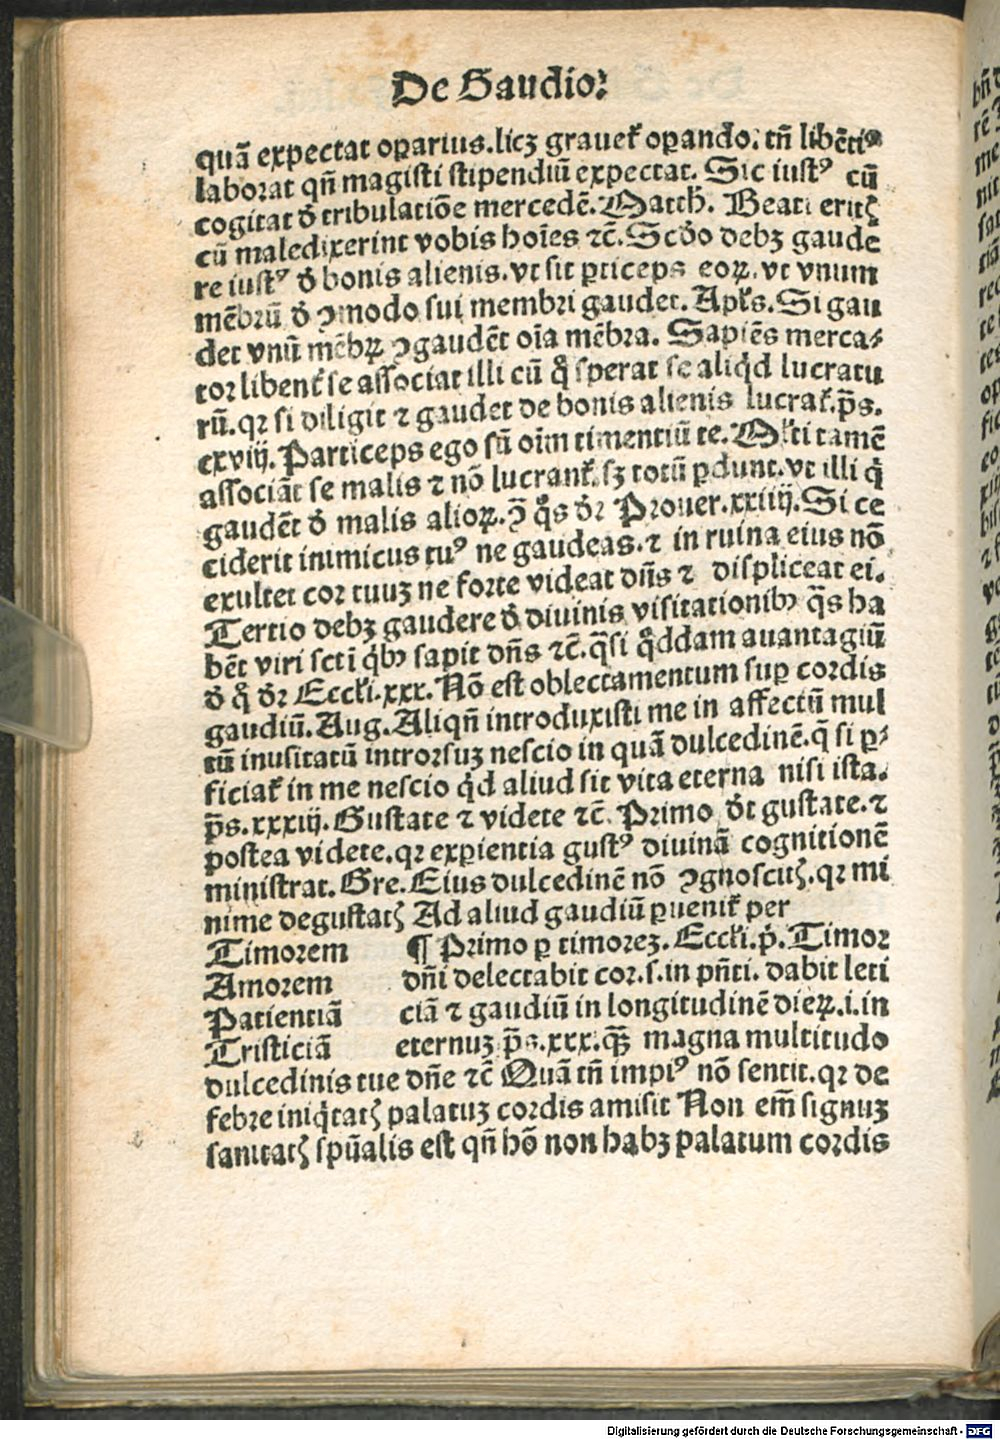 De Gaudio.
quã expectat oꝑarius.licꝫ grauet᷑ oꝑando. tñ libẽti⁹
laborat qñ magisti stipendiũ expectat. Sic iust⁹ cũ
cogitat ð tribulatiõe mercedẽ. Matth. Beati eritꝭ
cũ maledixerint vobis hoĩes ⁊c̃. Scðo debꝫ gaude
re iust⁹ ð bonis alienis. vt sit ꝑticeps eoꝝ. vt vnum
mẽbrũ ð ꝯmodo sui membri gaudet. Apl̃s. Si gau
det vnũ mẽbꝝ ꝯgaudẽt oĩa mẽbra. Sapiẽs merca⸗
tor libent᷑ se associat illi cũ q̊ sperat se aliqͥd lucratu
rũ. qꝛ si diligit ⁊ gaudet de bonis alienis lucrat᷑. p̃s.
cxviij. Particeps ego sũ oĩm timentiũ te. Ml̃ti tamẽ
associãt se malis ⁊ nõ lucrant᷑. sꝫ totũ ꝑdunt. vt illi qͥ
gaudẽt ð malis alioꝝ. ꝯ̃ q̊s ðꝛ Prouer. xxiiij. Si ce
ciderit inimicus tu⁹ ne gaudeas. ⁊ in ruina eius nõ
exultet cor tuuꝫ ne forte videat dñs ⁊ displiceat ei.
Tertio debꝫ gaudere ð diuinis visitationibꝰ q̃s ha
bẽt viri sctĩ qͥbꝰ sapit dñs ⁊c̃. q̃si q̊ddam auantagiũ
ð q̊ ðꝛ Eccl̃i. xxx. Nõ est oblectamentum suꝑ cordis
gaudiũ. Aug. Aliqñ introduxisti me in affectũ mul
tũ inusitatũ introrsuꝫ nescio in quã dulcedinẽ. q̃ si ꝑ⸗
ficiat᷑ in me nescio qͥd aliud sit vita eterna nisi ista.
p̃s. xxxiij. Gustate ⁊ videte ⁊c̃. Primo ðt gustate. ⁊
postea videte. qꝛ exꝑientia gust⁹ diuinã cognitionẽ
ministrat. Gre. Eius dulcedinẽ nõ ꝯgnoscitꝭ. qꝛ mi
nime degustatꝭ Ad aliud gaudiũ ꝑuenit᷑ per
Timorem ¶ Primo ꝑ timoreꝫ. Eccl̃i. pͥ. Timor
Amorem dñi delectabit cor. s. in pñti. dabit leti
Patientiã ciã ⁊ gaudiũ in longitudinẽ dieꝝ. i. in
Tristiciã eternuꝫ p̃s. xxx. q̃ꝫ magna multitudo
dulcedinis tue dñe ⁊c̃ Quã tñ impi⁹ nõ sentit. qꝛ de
febre iniqͥtatꝭ palatuꝫ cordis amisit Non em̃ signuꝫ
sanitatꝭ spũalis est qñ hõ non habꝫ palatum cordis
Digitalisierung gefördert durch die Deutsche Forschungsgemeinschaft - DFG